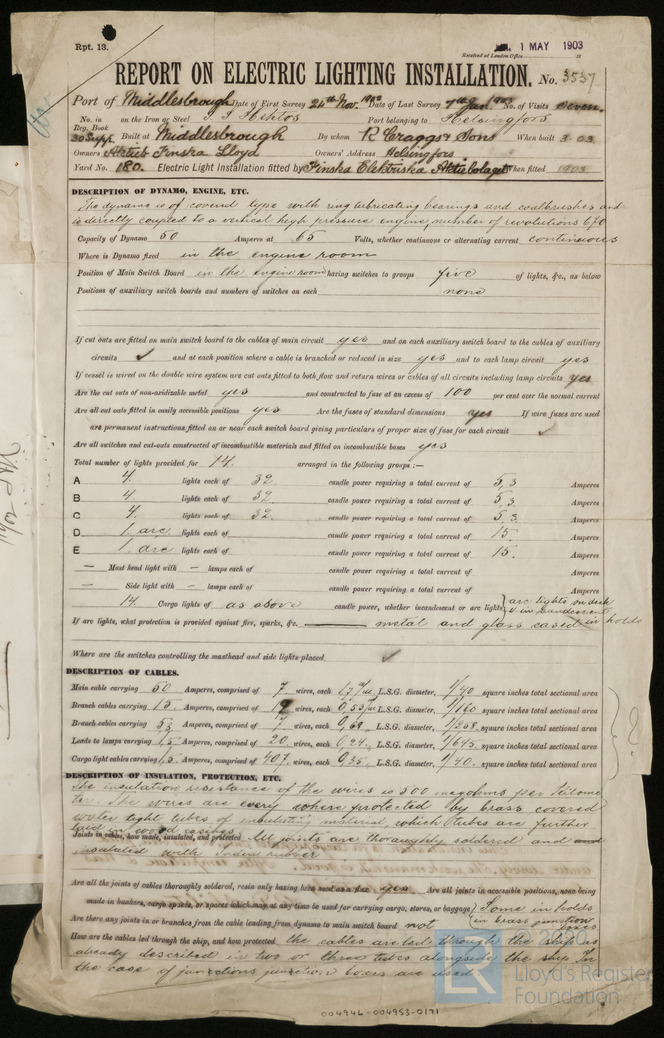 Rpt. 13.
1 MAY 1903
Received at London Office
REPORT ON ELECTRIC LIGHTING INSTALLATION. No. 3537
Port of Middlesbrough Date of First Survey 24th Nov. 1902 Date of Last Survey 7th Jan. 1903 No. of Visits Seven
No. in on the Iron or Steel Port belonging to Helsingfors
Reg. Book
30 Supp Built at Middlesbrough By whom R Craggs & Sons When built 3.03
Owners Aktieb Finska Lloyd Owners' Address Helsingfors
Yard No. 180. Electric Light Installation fitted by Finska Elektriska Aktiebolaget When fitted 1903
DESCRIPTION OF DYNAMO, ENGINE, ETC.
The dynamo is of coverd type with ring lubricating bearings and coalbrushes and
is directly coupled to a vertical high pressure engine, number of revolutions 670
Capacity of Dynamo 50 Amperes at 65 Volts, whether continuous or alternating current continuous
Where is Dynamo fixed in the engine room
Position of Main Switch Board in the engine room having switches to groups five of lights, &c., as below
Positions of auxiliary switch boards and numbers of switches on each none
If cut outs are fitted on main switch board to the cables of main circuit yes and on each auxiliary switch board to the cables of auxiliary
circuits ✓ and at each position where a cable is branched or reduced in size yes and to each lamp circuit yes
If vessel is wired on the double wire system are cut outs fitted to both flow and return wires or cables of all circuits including lamp circuits yes
Are the cut outs of non-oxidizable metal yes and constructed to fuse at an excess of 100 per cent over the normal current
Are all cut outs fitted in easily accessible positions yes Are the fuses of standard dimensions yes If wire fuses are used
are permanent instructions fitted on or near each switch board giving particulars of proper size of fuse for each circuit ✓
Are all switches and cut-outs constructed of incombustible materials and fitted on incombustible bases yes
Total number of lights provided for 14. arranged in the following groups :—
A 4. lights each of 32 candle power requiring a total current of 5,3 Amperes
B 4 lights each of 32 candle power requiring a total current of 5,3 Amperes
C 4. lights each of 32. candle power requiring a total current of 5,3 Amperes
D 1 arc lights each of candle power requiring a total current of 15. Amperes
E 1 arc lights each of candle power requiring a total current of 15. Amperes
— Mast head light with — lamps each of candle power requiring a total current of Amperes
— Side light with — lamps each of candle power requiring a total current of Amperes
14. Cargo lights of as above candle power, whether incandescent or arc lights arc lights on deck
& incandescent in holds
If arc lights, what protection is provided against fire, sparks, &c. metal and glass cased
Where are the switches controlling the masthead and side lights placed ✓
DESCRIPTION OF CABLES.
Main cable carrying 50 Amperes, comprised of 7. wires, each L.S.G. diameter, square inches total sectional area
Branch cables carrying 15. Amperes, comprised of wires, each L.S.G. diameter, square inches total sectional area
Branch cables carrying 5,3 Amperes, comprised of 7. wires, each L.S.G. diameter, square inches total sectional area
Leads to lamps carrying 1,5 Amperes, comprised of 20. wires, each L.S.G. diameter, square inches total sectional area
Cargo light cables carrying 1,5 Amperes, comprised of wires, each L.S.G. diameter, square inches total sectional area
DESCRIPTION OF INSULATION, PROTECTION, ETC.
The insulation resistance of the wires is 500 megohms per kilome
ter. The wires are every where protected by brass covered
water tight tubes of insulating material, which tubes are further
laid in wood casings
Joints in cables, how made, insulated, and protected All joints are thoroughly soldered and
insulated with India rubber
Are all the joints of cables thoroughly soldered, resin only having been used as a flux yes Are all joints in accessible positions, none being
made in bunkers, cargo spaces, or spaces which may at any time be used for carrying cargo, stores, or baggage Some in holds
in brass junction boxes
Are there any joints in or branches from the cable leading from dynamo to main switch board not
How are the cables led through the ship, and how protected the cables are led through the ship as
already described in two or three tubes alongside the ship In
the case of junctions junction boxes are used
© 2020
LR Lloyd's Register
Foundation
004946-004953-0171